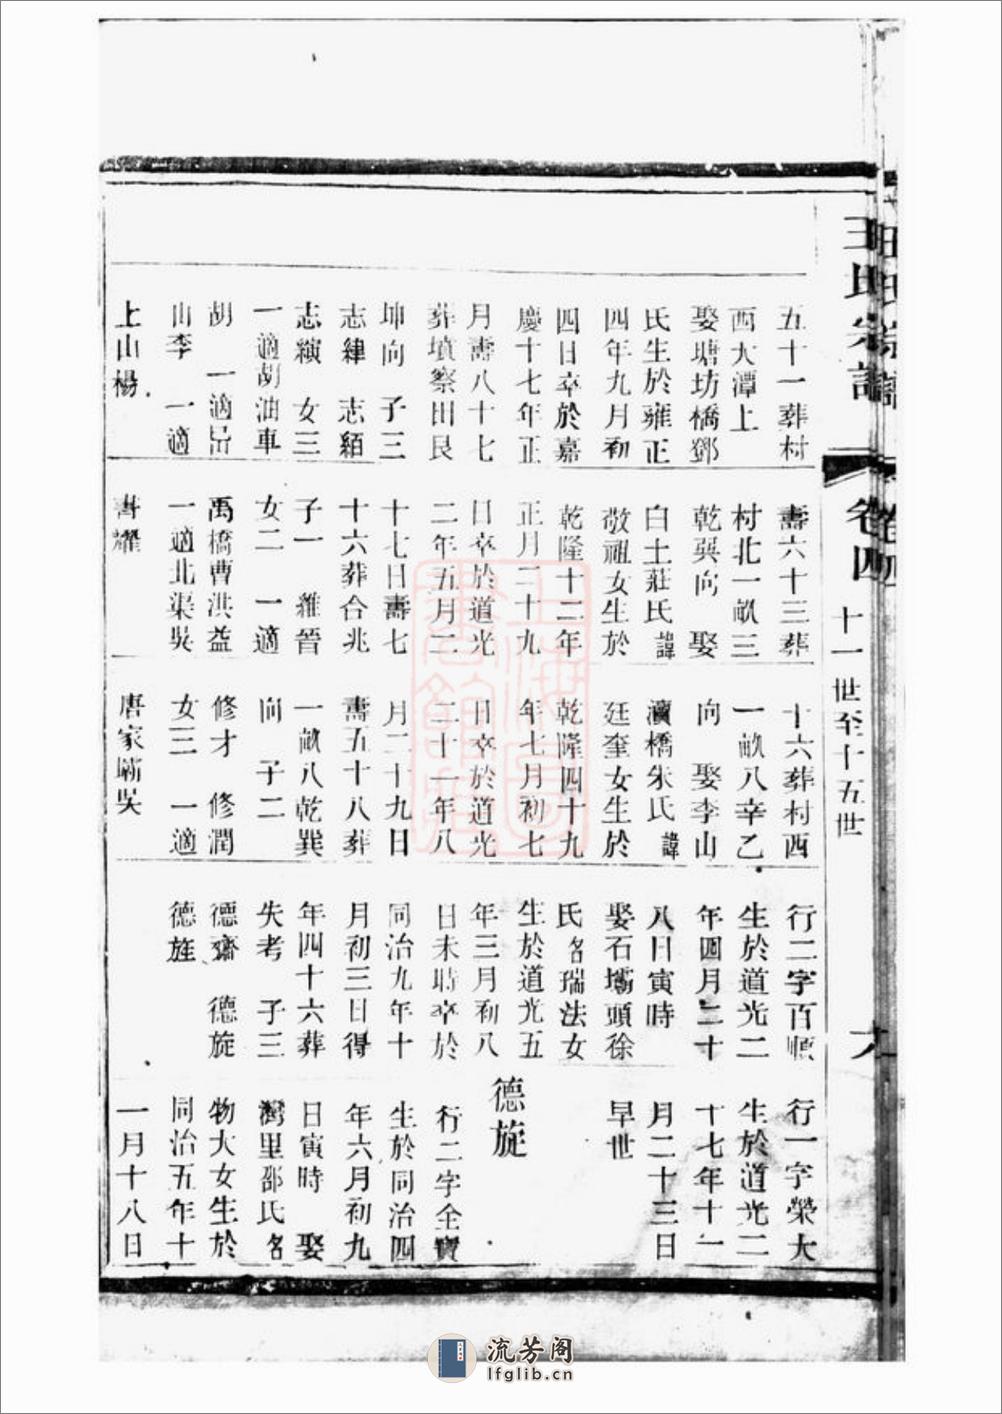 王氏宗譜
卷四
十一世至十五世
五十一葬村
西大潭上
娶塘坊橋鄧
氏生於雍正
四年九月初
四日卒於嘉
慶十七年正
月壽八十七
葬墳察田艮
坤向 子三
志緯 志絔
志繽 女三
一適胡油車
胡 一適呂
山李 一適
上山楊
壽六十三葬
村北一畝三
乾巽向 娶
白土莊氏諱
敬祖女生於
乾隆十二年
正月二十九
日卒於道光
二年五月二
十七日壽七
十六葬合兆
子一 雜晉
女二 一適
禹橋曹洪益
一適北渠吳
書耀
十六葬村西
一畝八辛乙
向 娶李山
瀆橋朱氏諱
廷奎女生於
乾隆四十九
年七月初七
日卒於道光
二十一年八
月二十九日
壽五十八葬
一畝八乾巽
向 子二
修才 修潤
女三 一適
唐家壩吳
行二字百順
生於道光二
年四月二十
八日寅時
娶石壩頭徐
氏名瑞法女
生於道光五
年三月初八
日未時卒於
同治九年十
月初三日得
年四十六葬
失考 子三
德齋 德旋
德旌
行一字榮大
生於道光二
十七年十一
月二十三日
早世
德旋
行二字全寶
生於同治四
年六月初九
日寅時 娶
灣里邵氏名
物大女生於
同治五年十
一月十八日
流芳阁
lfglib.cn